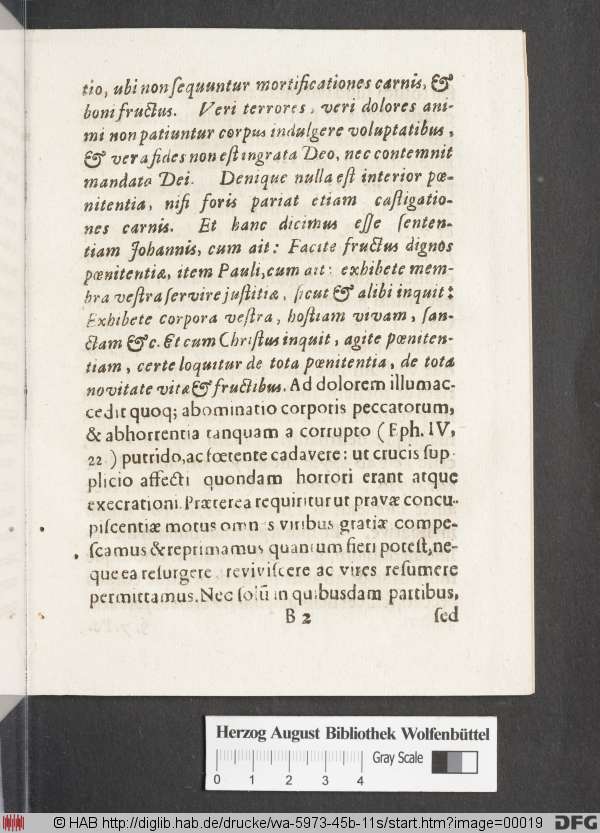 tio, ubi non sequuntur mortificationes carnis, &
boni fructus. Veri terrores, veri dolores ani-
mi non patiuntur corpus indulgere voluptatibus,
& vera fides non est ingrata Deo, nec contemnit
mandata Dei. Denique nulla est interior pœ-
nitentia, nisi foris pariat etiam castigatio-
nes carnis. Et hanc dicimus esse senten-
tiam Johannis, cum ait: Facite fructus dignos
pœnitentiæ, item Pauli, cum ait: exhibete mem-
bra vestra servire justitiæ, sicut & alibi inquit:
Exhibete corpora vestra, hostiam vivam, san-
ctam &c. Et cum Christus inquit, agite pœniten-
tiam, certe loquitur de tota pœnitentia, de tota
novitate vitæ & fructibus. Ad dolorem illum ac-
cedit quoq; abominatio corporis peccatorum,
& abhorrentia tanquam a corrupto (Eph. IV,
22.) putrido, ac fœtente cadavere: ut crucis sup-
plicio affecti quondam horrori erant atque
execrationi. Præterea requiritur ut pravæ concu-
piscentiæ motus omnes viribus gratiæ compe-
scamus & reprimamus quantum fieri potest, ne-
que ea resurgere, reviviscere ac vires resumere
permittamus. Nec solũ in quibusdam partibus,
B 2 sed
Herzog August Bibliothek Wolfenbüttel
Gray Scale
0 1 2 3 4
© HAB http://diglib.hab.de/drucke/wa-5973-45b-11s/start.htm?image=00019
DFG